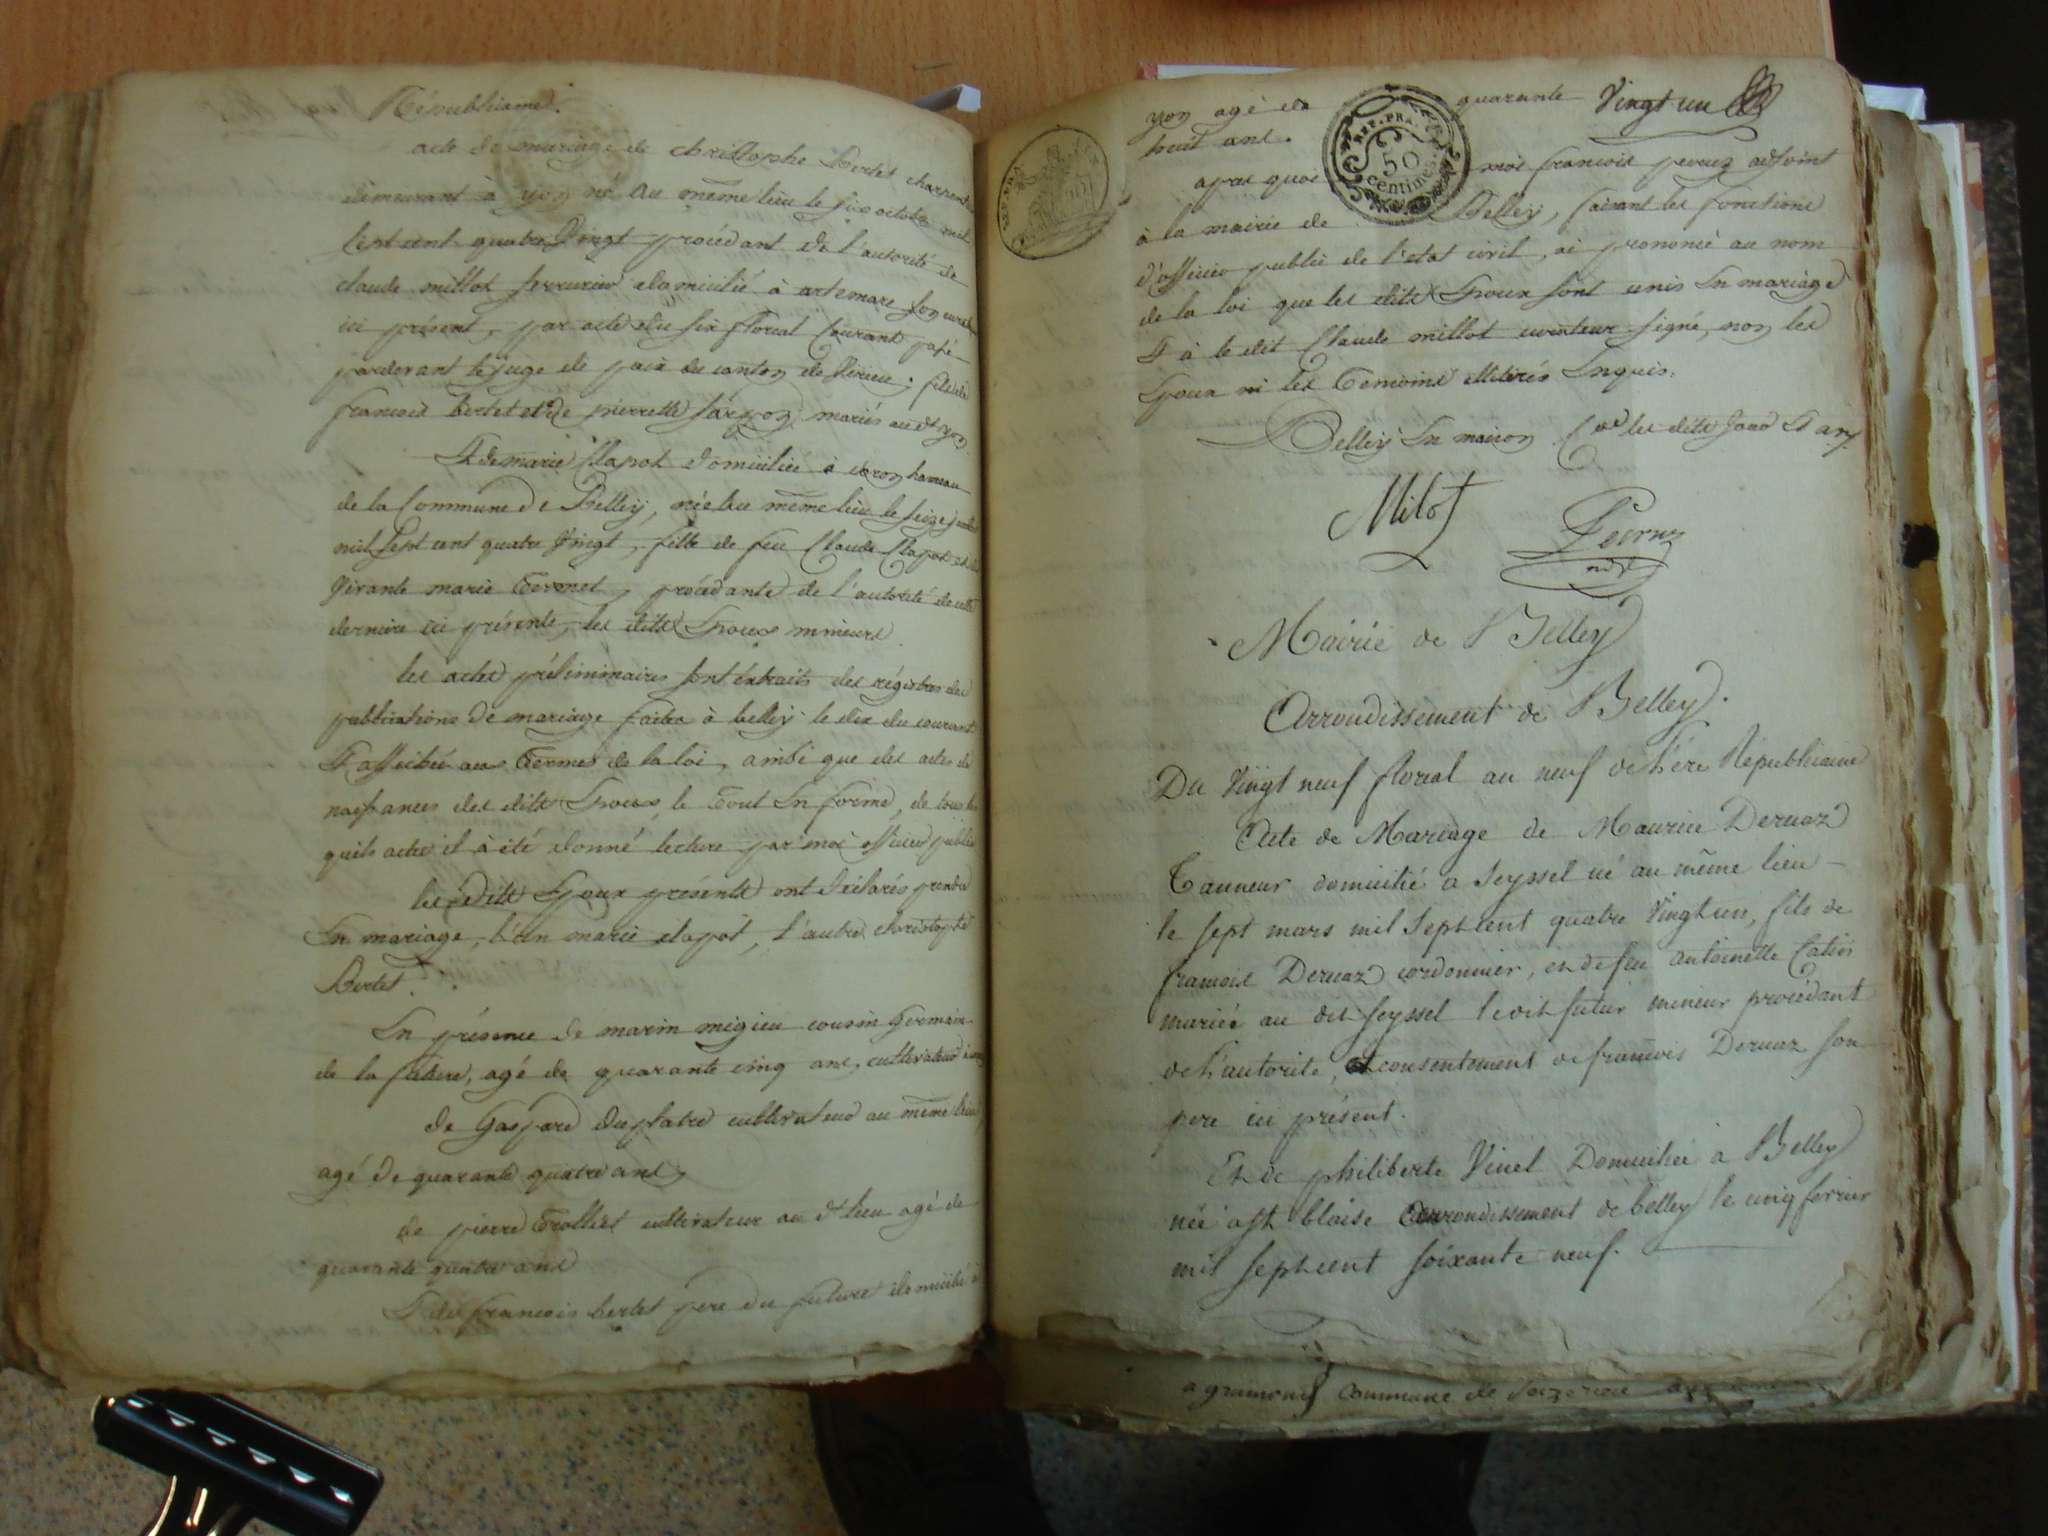 Républicaine.
acte de mariage de christophe Bertet charpent
demeurant à yon né au même lieu le six octobre mil
sept cent quatre Vingt procédant de l'autorité de
claude millot serrurier domicilié à artemare son curat
ici présent, par acte du six floreal courant passé
pardevant le juge de paix du canton de Virieu; fils de
francois bertet et de pierrette mariés au dt yon
Et de marie Clapot domiciliée à coron hameau
de la Commune de Belley, née au même lieu le seize
mil sept cent quatre Vingt, fille de feu Claude Clapot et de
Vivante marie Tervret, procédante de l'autorité de cette
derniere ici présente, les dits Epoux mineurs
les actes préliminaires sont éxtraits des régistres des
publications de mariage faites à belley le dix du courant
Et affichés aux termes de la loi, ainsi que des actes de
naissances des dits Epoux, le tout En forme, de tous les
quels actes il à été donné lecture par moi officier public
les dits Epoux présents ont déclarés prendre
En mariage, l'un marie clapot, l'autre christophe
Bertet.
En présence de marin migieu cousin Germain
de la future, agé de quarante cinq ans, cultivateur à
de Gaspard Duplatre cultivateur au même lieu
agé de quarante quatre ans,
de pierre Trolliet cultivateur au dt lieu agé de
quarante quatre ans
Et de francois bertet pere du future domicilié à
yon agé de quarante Vingt un
huit ans.
REP. FRA.
50
centimes
apres quoi moi francois peyruz adjoint
à la mairie de Belley, faisant les fonctions
d'officier public de l'etat civil, ai prononcé au nom
de la loi que les dits Epoux sont unis En mariage
Et à le dit Claude millot curateur signé, non les
Epoux ni les temoins illitérés Enquis.
Belley En maison Cne les dits jour Et an
Milot
Peyruz
adjt
Mairie de Belley
Arrondissement de Belley.
Du Vingt neuf floreal an neuf de l'ére Républicaine
Acte de Mariage de Maurice Deruaz
Tanneur domicilié a Seyssel né au même lieu
le sept mars mil sept cent quatre Vingt un, fils de
francois Deruaz cordonnier, et de feu antoinette Catin
mariés au dit Seyssel le dit futur mineur procédant
de l'autorité, et consentement de francois Deruaz son
pere ici présent.
Et de philiberte Vinet Domiciliée à Belley
née a St blaise arrondissement de belley le cinq fevrier
mil sept cent soixante neuf.
a gramond Commune de